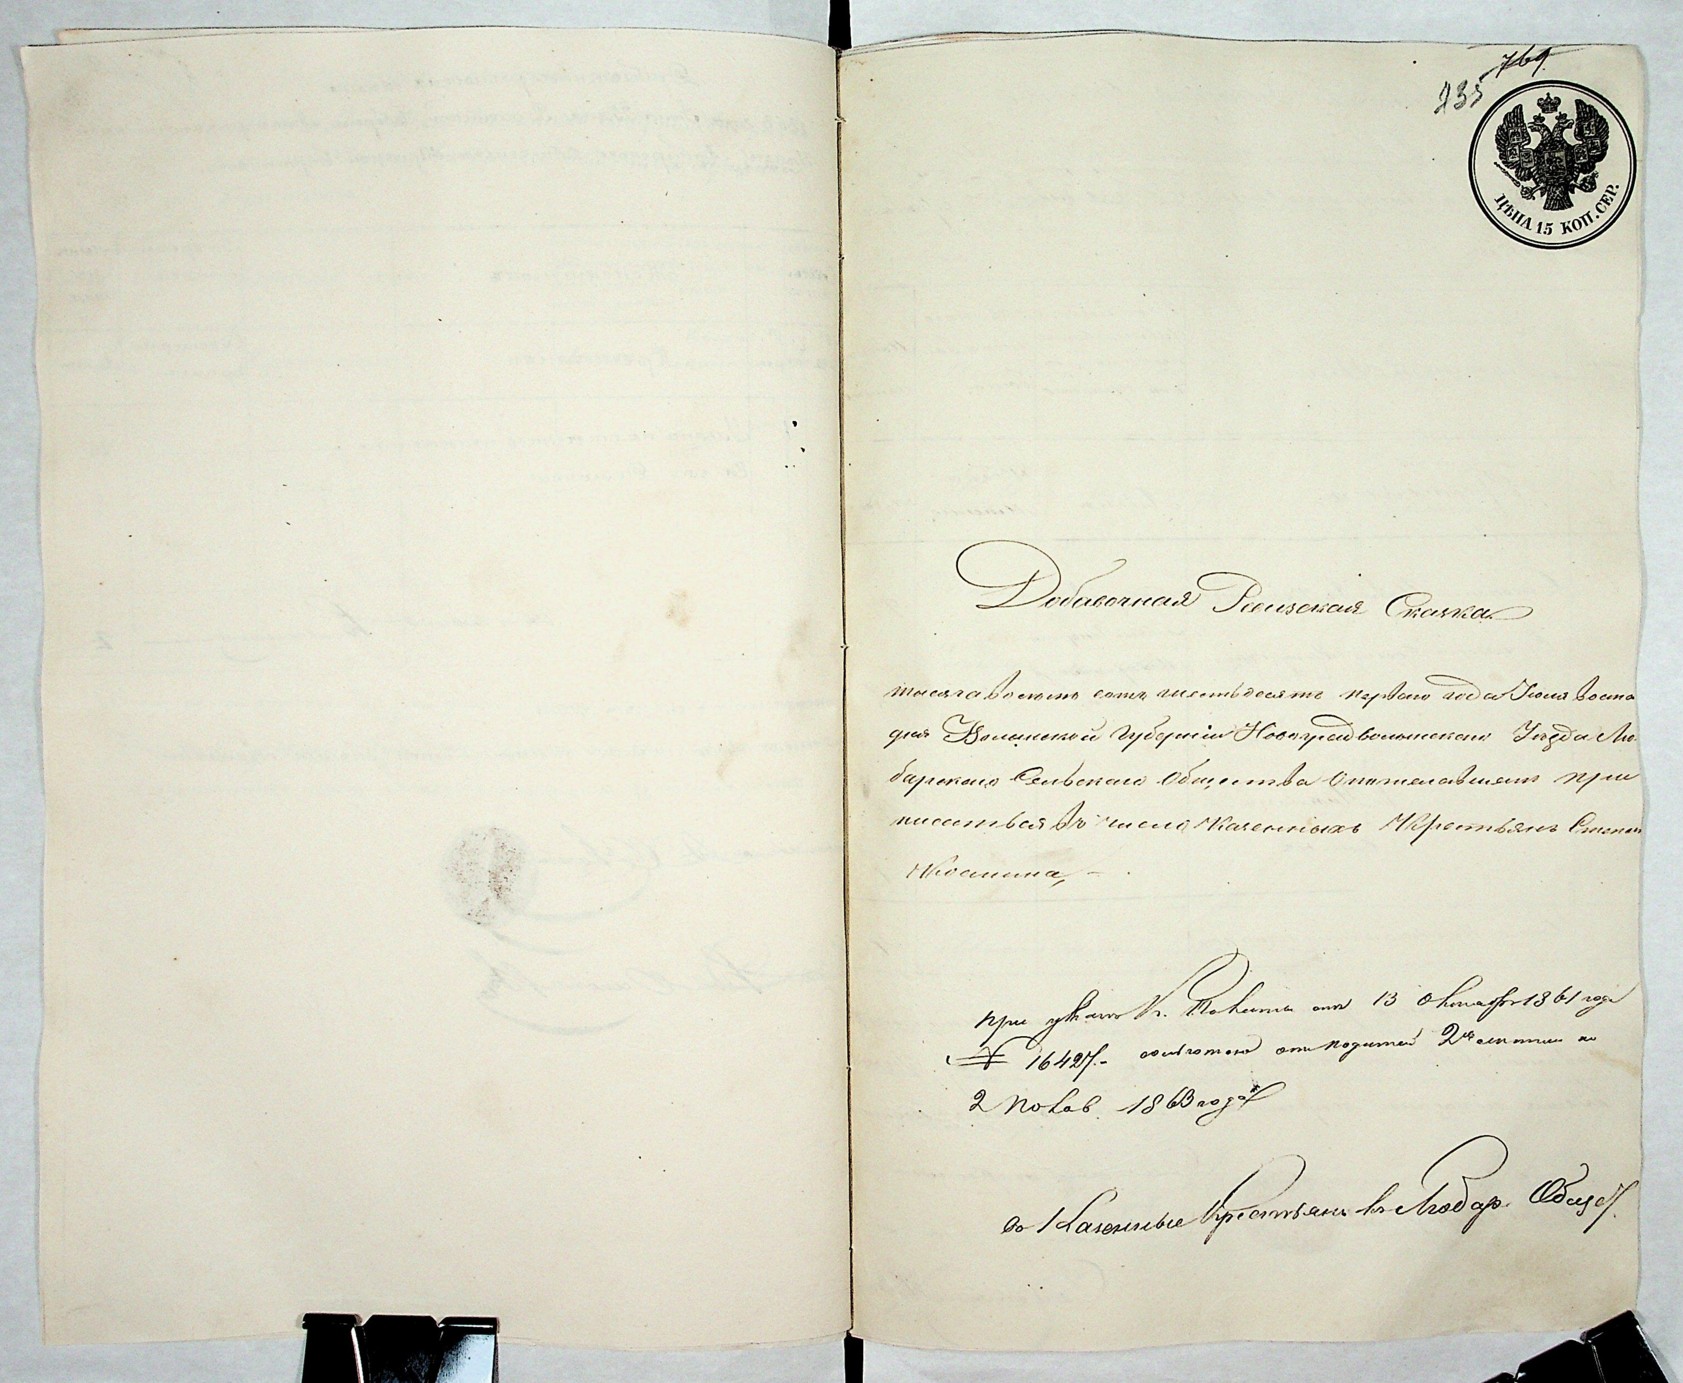 769
735
ЦѢНА 15 КОП. СЕР.
Добавочная Ревизская Сказка
тысяча восемь сотъ шестьдесятъ перваго года Іюля
дня Волынской Губерніи Новоградволынскаго Уѣзда Лю
барскаго Сельскаго Общества о пожелавшемъ при
писаться въ число Казенныхъ Крестьянъ Степан

при указѣ К. Палаты отъ 13 Октября 1861 года
№ 16427. – со льготою отъ податей 2й по
2 полов. 1863 года
въ Казенные Крестьяне въ Любар. Общес.